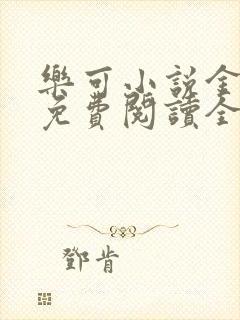 樂可小說全
免費閱讀全
鄧肯